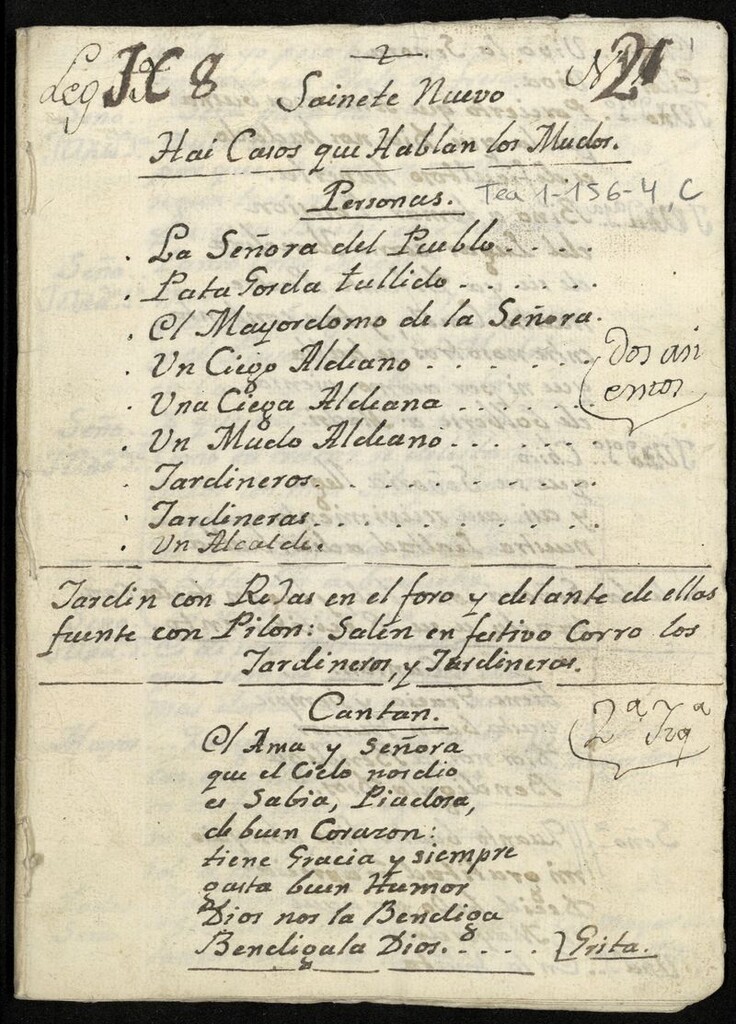 2
Leg.º IC 8
Nº 21
Sainete Nuevo
Hai Casos que Hablan los Mudos.
Personas.
Tea 1-156-4 C
. La Señora del Pueblo. . . .
. Pata Gorda tullido. . . . .
. El Mayordomo de la Señora.
. Un Ciego Aldeano . . . . . .
. Una Ciega Aldeana . . . . .
. Un Mudo Aldeano. . . . . .
dos asi
entos
. Jardineros. . . . . . . . . .
. Jardineras. . . . . . . . . .
. Un Alcalde.
Jardin con Rejas en el foro y delante de ellas
fuente con Pilon: Salen en festivo Corro los
Jardineros, y Jardineras.
Cantan.
2ª Izqª
El Ama y Señora
que el Cielo nos dio
es Sabia, Piadosa,
de buen Corazon:
tiene Gracia y siempre
gasta buen Humor
Dios nos la Bendiga
Bendigala Dios. . . . . } Grita.